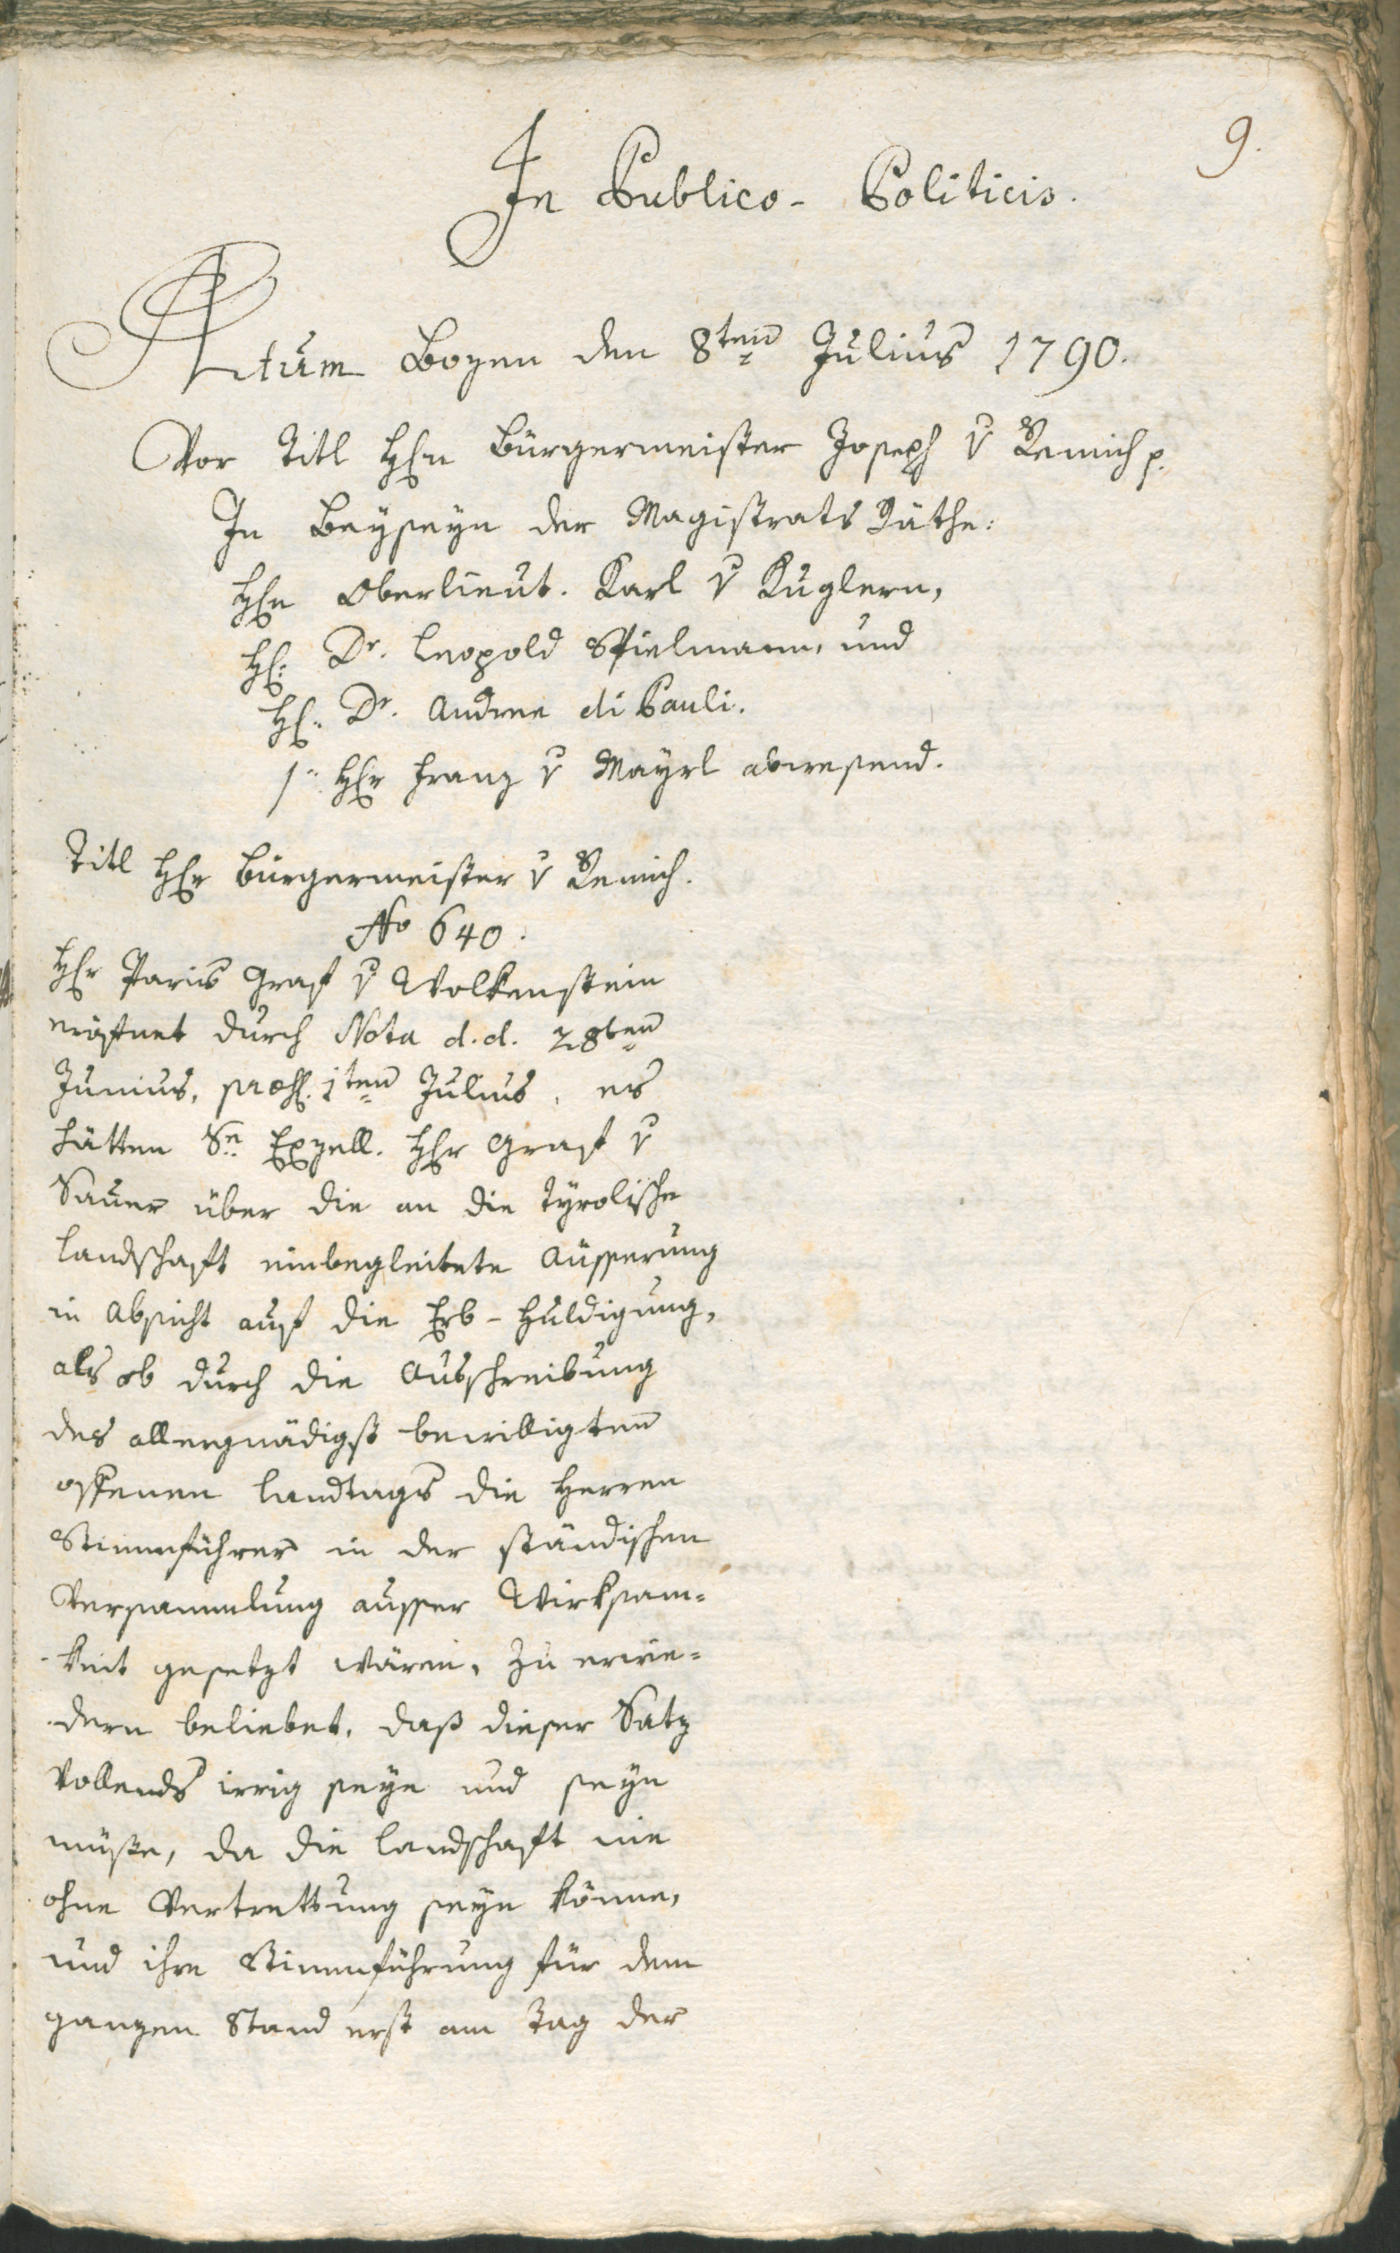 9.
In Publico-Politicis.
Actum Bozen den 8ten Julius 1790.
Vor Titl Hhn Bürgermeister Joseph v Remich p.
In Beyseyn der Magistrats Räthe:
Hhn Oberlieut. Karl v Kuglern,
H: Dr. Leopold Spielmann, und
H: Dr. Andree di Pauli.
Hhr Franz v Mayrl abwesend.
Titl Hhr Bürgermeister v Remich.
No 640.
Hhr Paris Graf v Wolkenstein
eröfnet durch Nota d. d. 28ten
Junius, 1ten Julius, es
hätten Se Exzell. Hhr Graf v
Sauer über die an die Tyrolische
Landschaft einbegleitete Aüsserung
in Absicht auf die Erb-Huldigung,
als ob durch die Ausschreibung
des allergnädigst bewilligten
offenen Landtags die Herren
Stimmführer in der ständischen
Versammlung ausser Wirksam=
keit gesetzt wären, zu erwie=
dern beliebet, daß dieser Satz
vollends irrig seye und seyn
müße, da die Landschaft nie
ohne Vertrettung seyn könne,
und ihre Stimmführung für dem
ganzen Stand erst am Tag der